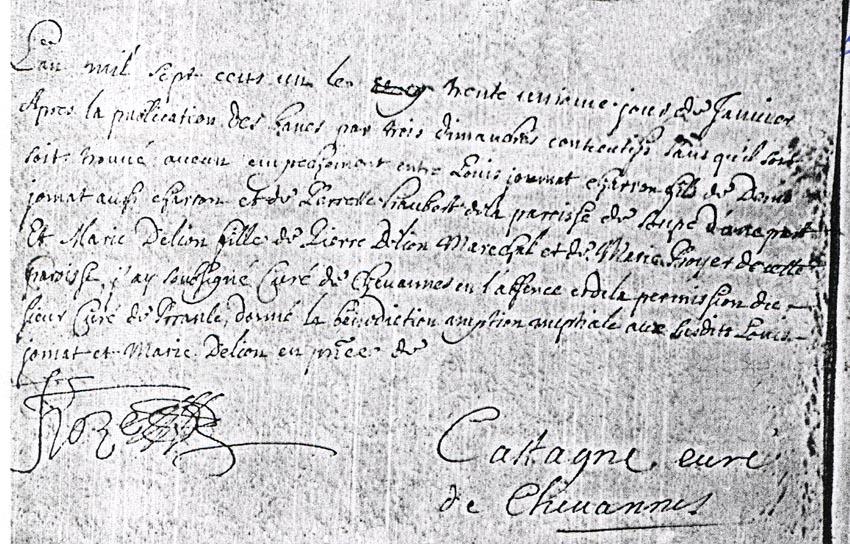 L'an mil sept cens un le trente unieme jour de Janvier
Apres la publication des bancs par trois dimanches consecutifs sans qu'il soit
soit trouvé aucun empeschement entre Louis jomat charron fils de Denis
jomat aussi charron et de Pierrette de la paroisse de d'une part
Et Marie Delion fille de Pierre Delion Marechal et de Marie Royer de cette
paroisse, j'ay soussigné Curé de Chevannes en l'absence et de la permission du
sieur Curé de donné la bénédiction nuptiale aux susdits Louis
jomat et Marie Delion en pñce de
Castagne, curé
de Chevannes